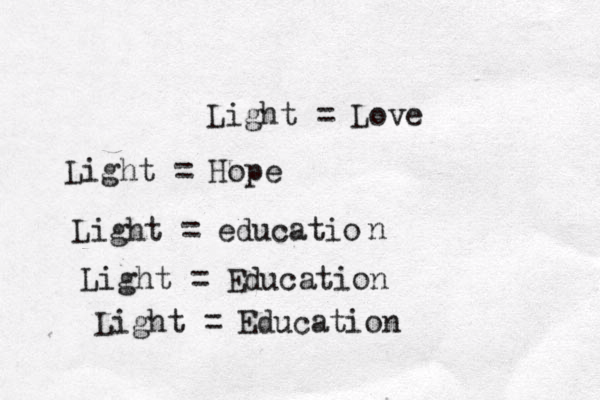 Light = Love
Light = Hope
Light = education
Light = Education
Light = Education